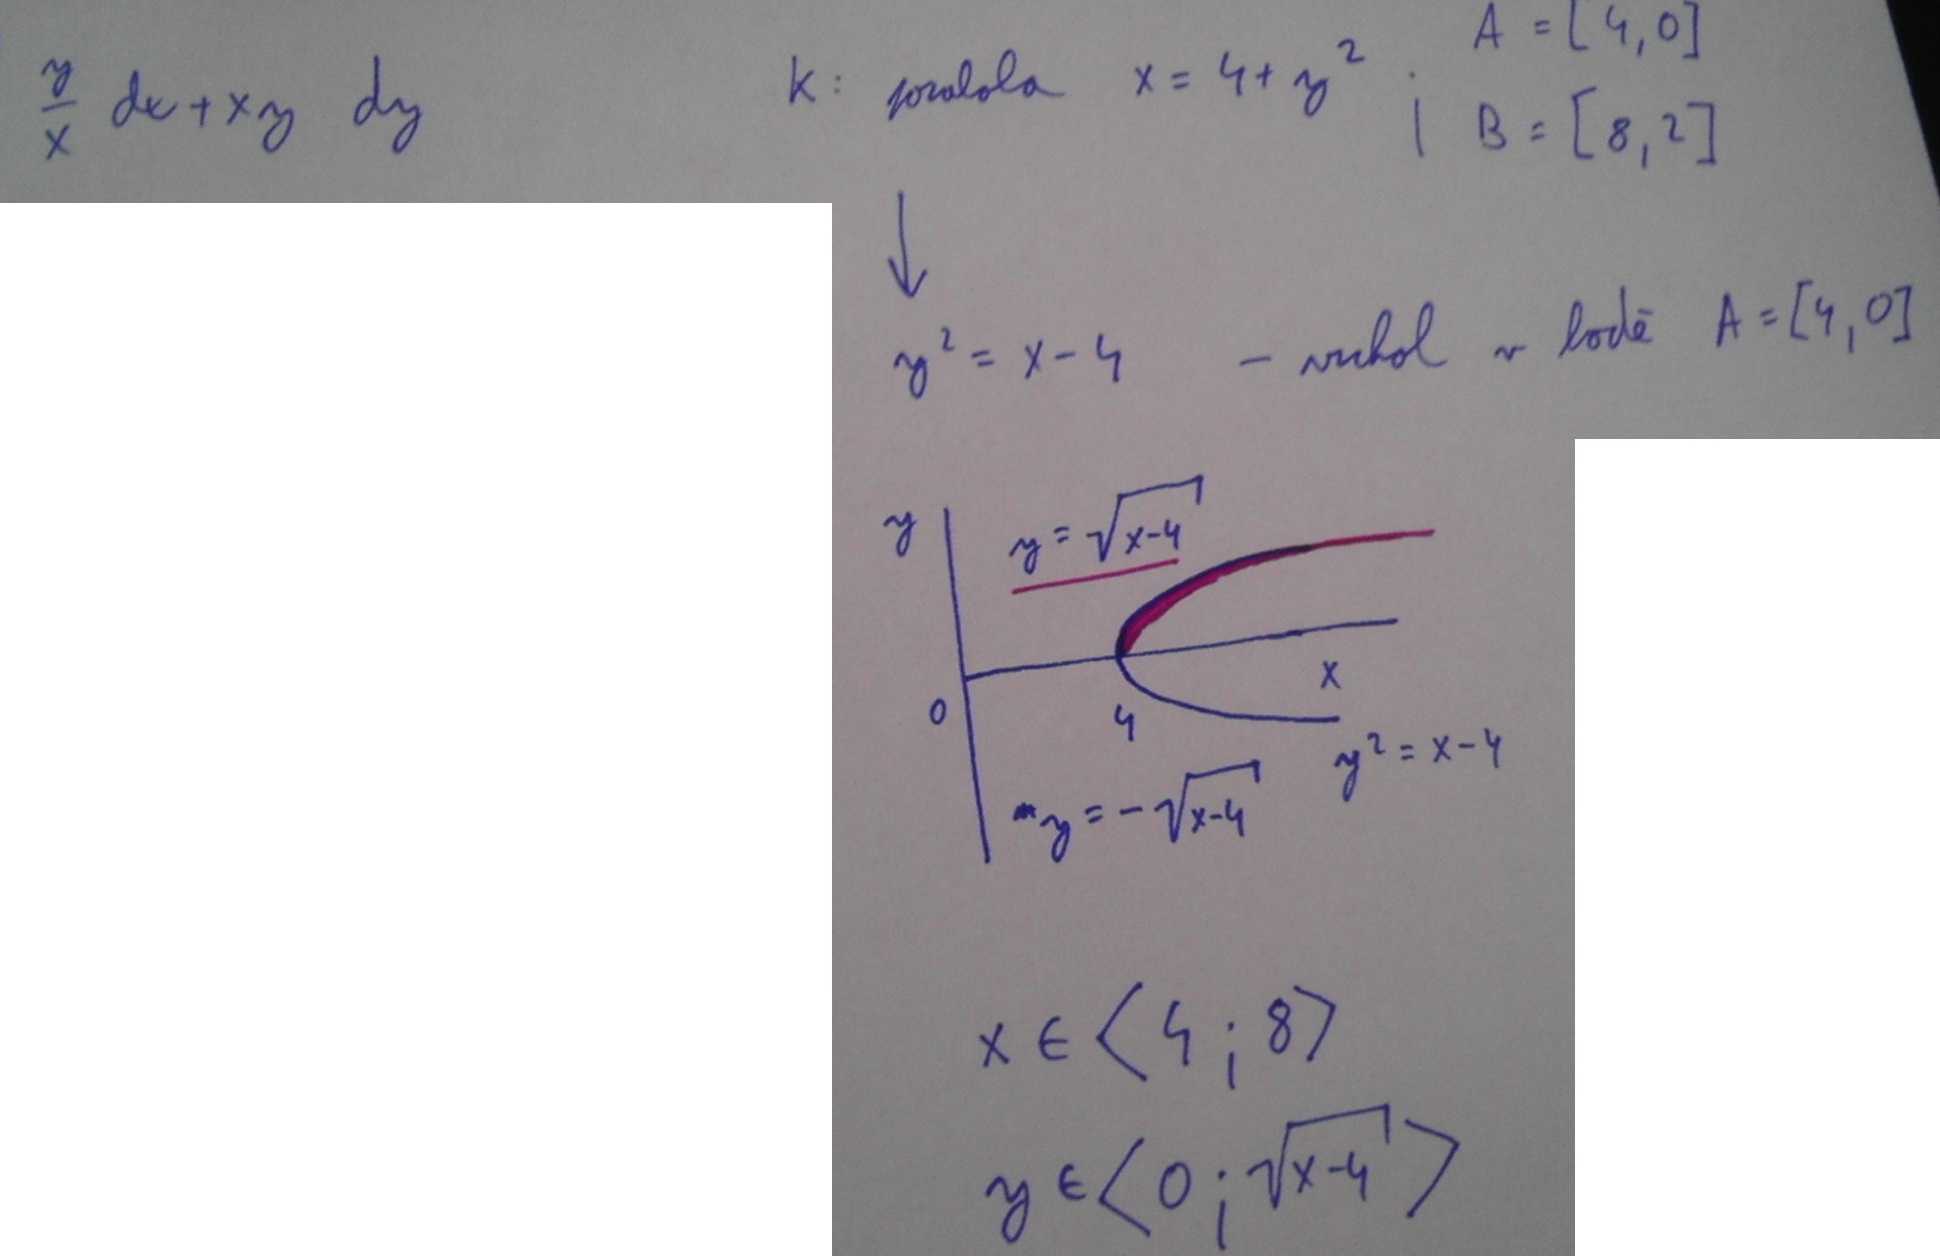 y/x dx + xy dy
k: parabola x = 4 + y² ; A = [4,0]
B = [8,2]
y² = x - 4 - vrchol v bodě A = [4,0]
y
y = √(x-4)
x
0
4
y² = x - 4
y = -√(x-4)
x ∈ <4 ; 8>
y ∈ <0 ; √(x-4)>